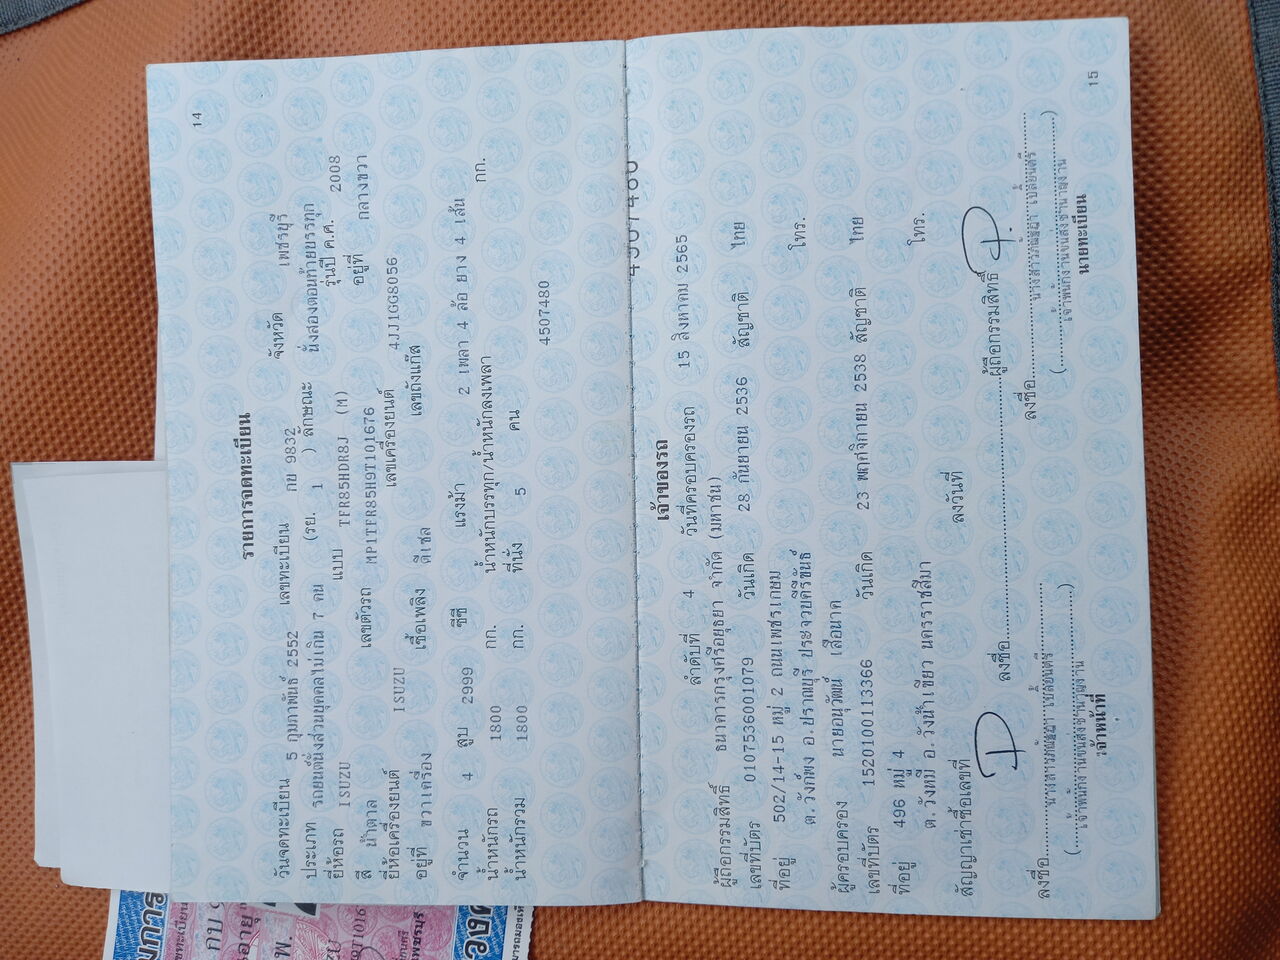 14
รายการจดทะเบียน
วันจดทะเบียน 5 กุมภาพันธ์ 2552 เลขทะเบียน กบ 9832 จังหวัด เพชรบุรี
ประเภท รถยนต์นั่งส่วนบุคคลไม่เกิน 7 คน (รย. 1 ) ลักษณะ นั่งสองตอนท้ายบรรทุก
ยี่ห้อรถ ISUZU แบบ TFR85HDR8J (M) รุ่นปี ค.ศ. 2008
สี น้ำตาล เลขตัวรถ MP1TFR85H9T101676 อยู่ที่ กลางขวา
ยี่ห้อเครื่องยนต์ ISUZU เลขเครื่องยนต์ 4JJ1GG8056
อยู่ที่ ขวาเครื่อง เชื้อเพลิง ดีเซล เลขถังแก๊ส
จำนวน 4 สูบ 2999 ซีซี แรงม้า 2 เพลา 4 ล้อ ยาง 4 เส้น
น้ำหนักรถ 1800 กก. น้ำหนักบรรทุก/น้ำหนักลงเพลา กก.
น้ำหนักรวม 1800 กก. ที่นั่ง 5 คน
4507480
4507480
เจ้าของรถ
ลำดับที่ 4 วันที่ครอบครองรถ 15 สิงหาคม 2565
ผู้ถือกรรมสิทธิ์ ธนาคารกรุงศรีอยุธยา จำกัด (มหาชน)
เลขที่บัตร 0107536001079 วันเกิด 28 กันยายน 2536 สัญชาติ ไทย
ที่อยู่ 502/14-15 หมู่ 2 ถนนเพชรเกษม
ต.วังก์พง อ.ปราณบุรี ประจวบคีรีขันธ์ โทร.
ผู้ครอบครอง นายอนุวัฒน์ เสือนาค
เลขที่บัตร 1520100113366 วันเกิด 23 พฤศจิกายน 2538 สัญชาติ ไทย
ที่อยู่ 496 หมู่ 4
ต.วังหมี อ.วังน้ำเขียว นครราชสีมา โทร.
สัญญาเช่าซื้อเลขที่ ลงวันที่
ลงชื่อ ผู้ถือกรรมสิทธิ์
ลงชื่อ ลงชื่อ
เจ้าหน้าที่ นายทะเบียน
15